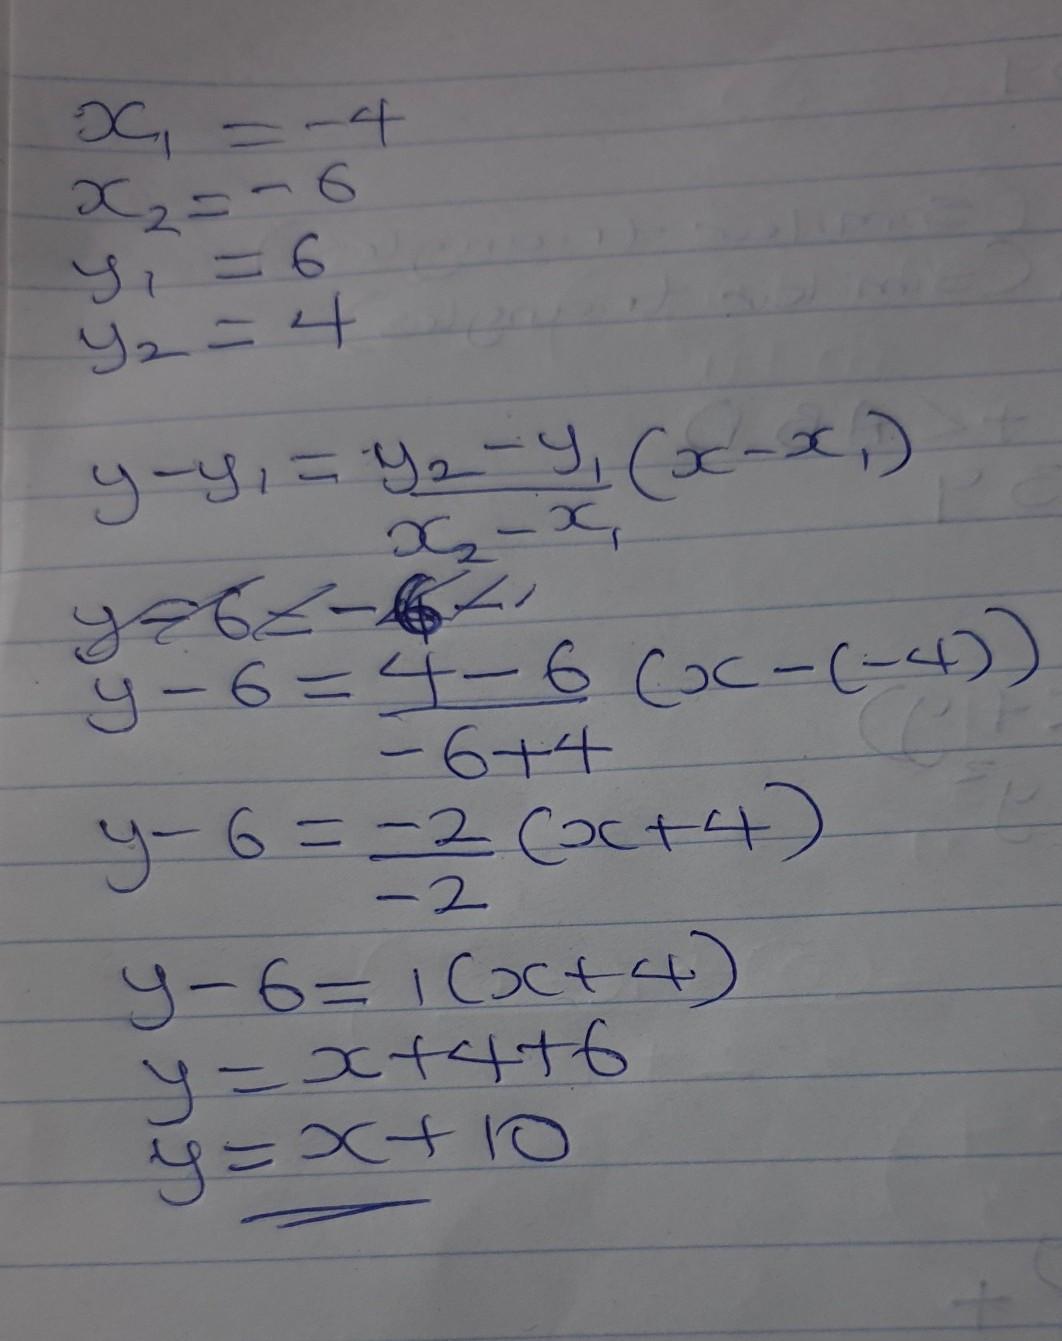 x₁ = -4
x₂ = - 6
y₁ = 6
y₂ = 4
y-y₁ = y₂-y₁/x₂-x₁ (x-x₁)
y - 6 = 4-6/-6+4 (x-(-4))
y- 6 = -2/-2 (x+4)
y-6= 1(x+4)
y = x+4+6
y = x+10